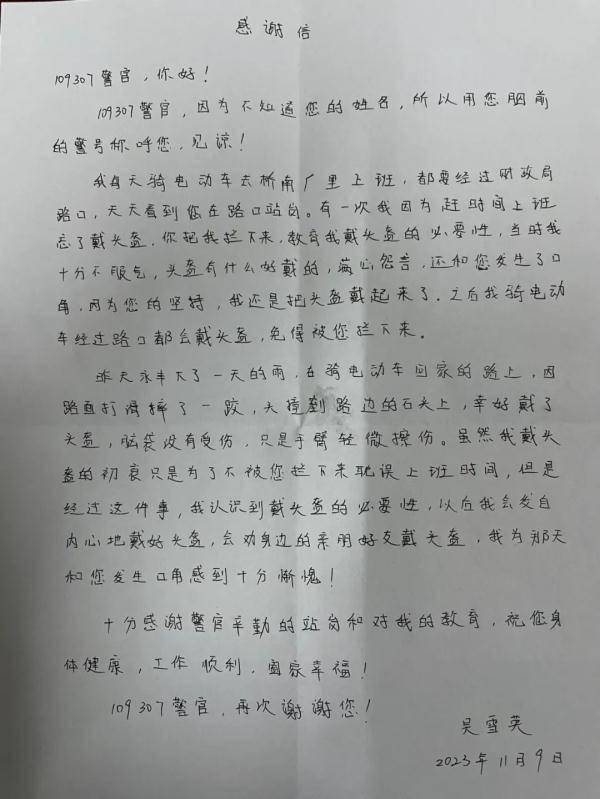 感谢信
109307警官，你好！
109307警官，因为不知道您的姓名，所以用您胸前
的警号称呼您，见谅！
我每天骑电动车去桥南厂里上班，都要经过财政局
路口，天天看到您在路口站岗。有一次我因为赶时间上班
忘了戴头盔，你把我拦下来，教育我戴头盔的必要性，当时我
十分不服气，头盔有什么好戴的，满心怨言，还和您发生了口
角，因为您的坚持，我还是把头盔戴起来了。之后我骑电动
车经过路口都会戴头盔，免得被您拦下来。
昨天永丰下了一天的雨，在骑电动车回家的路上，因
路面打滑摔了一跤，头撞到路边的石头上，幸好戴了
头盔，脑袋没有受伤，只是手臂轻微擦伤。虽然我戴头
盔的初衷只是为了不被您拦下来耽误上班时间，但是
经过这件事，我认识到戴头盔的必要性，以后我会发自
内心地戴好头盔，会劝身边的亲朋好友戴头盔，我为那天
和您发生口角感到十分惭愧！
十分感谢警官辛勤的站岗和对我的教育，祝您身
体健康，工作顺利，阖家幸福！
109307警官，再次谢谢您！
吴雪英
2023年11月9日